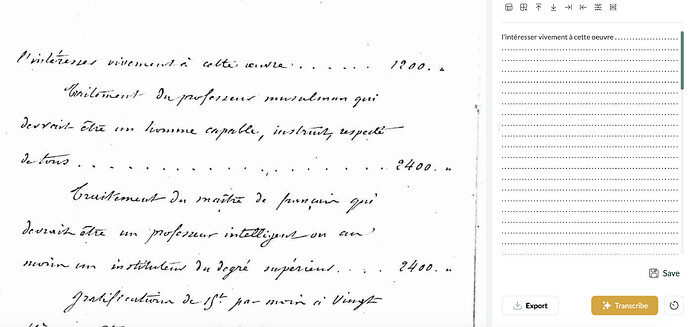 l'intéresser vivement à cette œuvre . . . . . . 1200. "
Traitement du professeur musulman qui
devrait être un homme capable, instruit, respecté
de tous . . . . . . . . . . . . . . . . . . . . 2400. "
Traitement du maître de français qui
devrait être un professeur intelligent ou au
moins un instituteur du degré supérieur . . . . 2400. "
Gratifications de 15f par mois à vingt
l'intéresser vivement à cette oeuvre . . . . . . . . . . . . . . . . . .
Save
Export
Transcribe